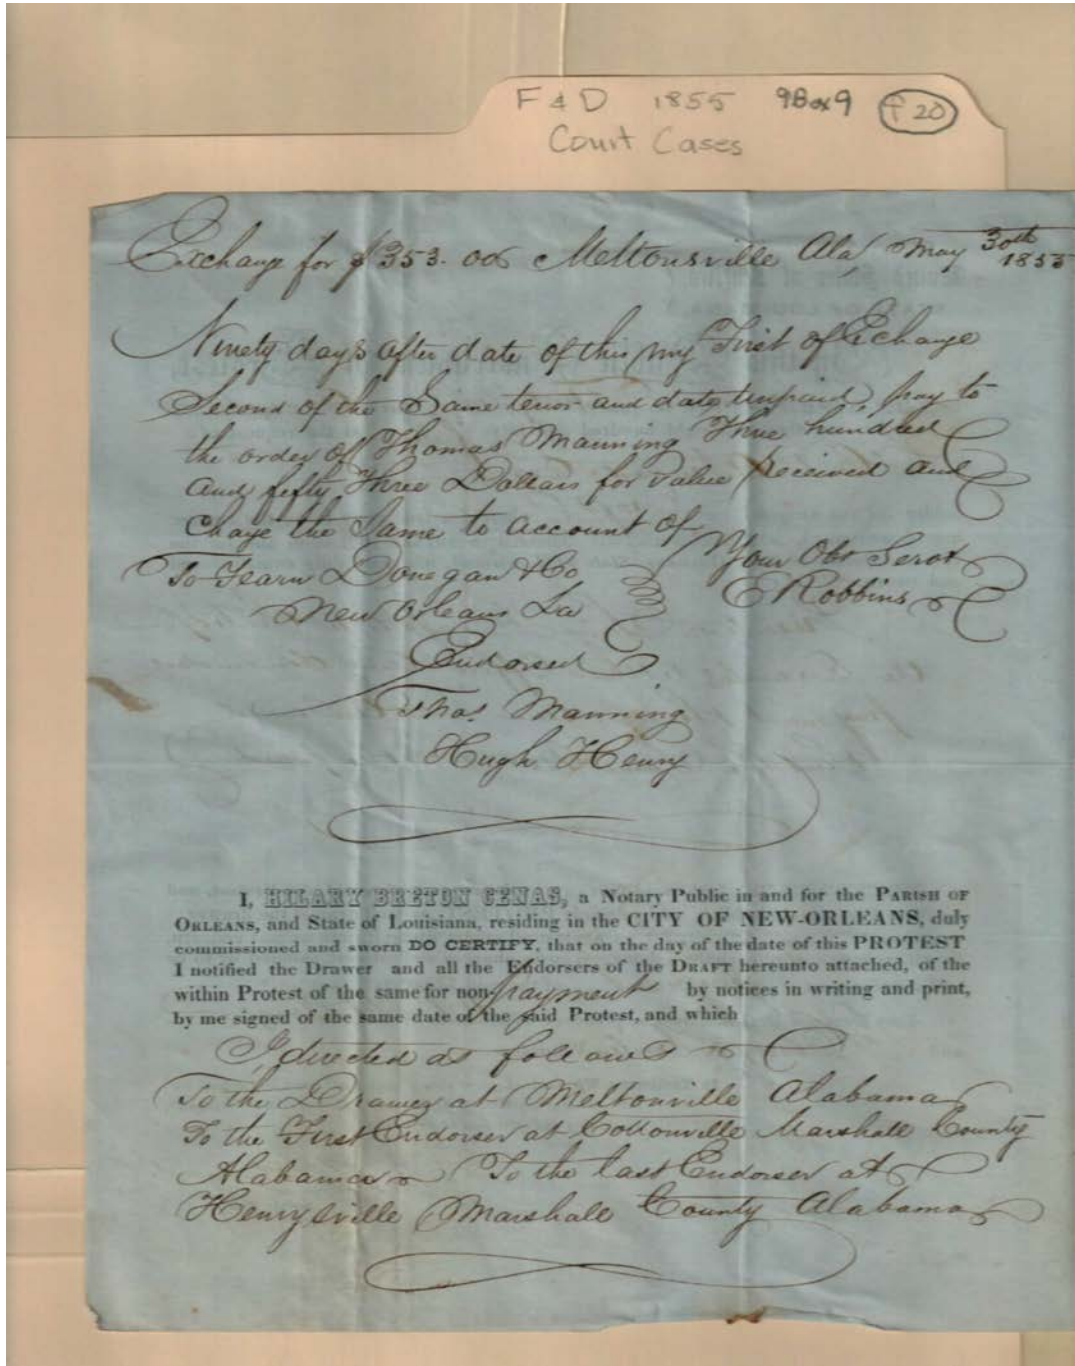 F & D 1855 9Box9 F 20
Court Cases
Exchange for $353.00 Meltonsville Ala May 30th
1853
Ninety days after date of this my First of Echange
Second of the Same tenor and date unpaid, pay to
the order of Thomas Manning Three hundred
and fifty Three Dollars for value received and
Chage the Same to account of
Your Obt Servt
To Fearn Donegan & Co
E Robbins
New Orleans La
Endorsed
Thos. Manning
Hugh Henry
I, HILARY BRETON CENAS, a Notary Public in and for the PARISH OF
ORLEANS, and State of Louisiana, residing in the CITY OF NEW-ORLEANS, duly
commissioned and sworn DO CERTIFY, that on the day of the date of this PROTEST
I notified the Drawer and all the Endorsers of the DRAFT hereunto attached, of the
within Protest of the same for non-payment by notices in writing and print,
by me signed of the same date of the said Protest, and which
I directed as follows
To the Drawer at Meltonville Alabama
To the First Endorser at Cottonville Marshall County
Alabama To the last Endorser at
Henryville Marshall County Alabama